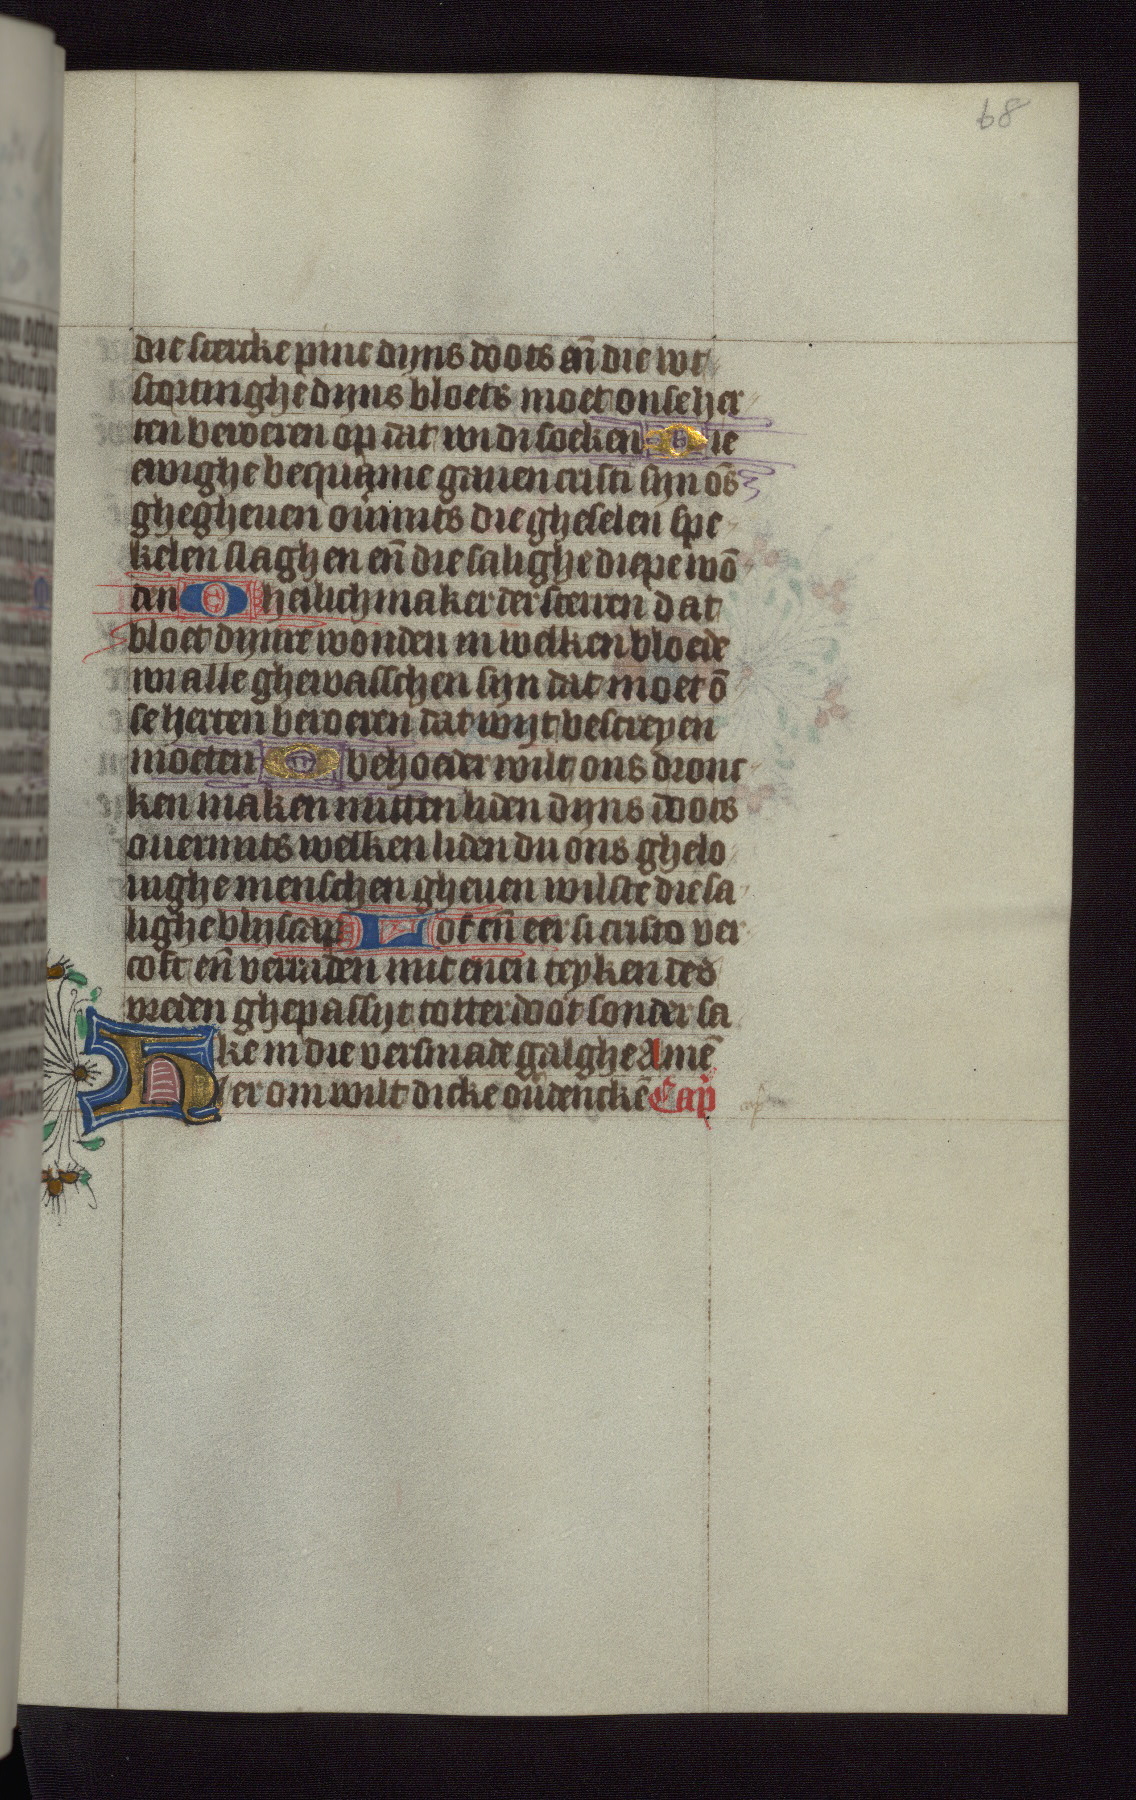 68
die stercke pine dijns doots en̄ die wt
stortinghe dijns bloets moet onse her
ten beroeren op dat wi di soeken Die
ewighe bequame gauen cristi sijn ōs
ghegheuen ou̅mits die gheselen spe
kelen slaghen en̄ die salighe diepe wō
den O heilichmaker der sterren dat
bloet dijnre wonden in welken bloede
wi alle ghewasschen sijn dat moet ō
se herten beroeren dat wijt bescreyen
moeten O behoeder wilt ons dronc
ken maken mitten liden dijns doots
ouermits welken liden du ons ghelo
uighe menschen gheuen wilste die sa
lighe blijscap Lof en̄ eer si cristo ver
coft en̄ verraden mit enen teyken des
vreden ghepassijt totter doot sonder sa
ke in die versmade galghe Amē
Hier om wilt dicke ou̅dencke̅ Cap̄
cap